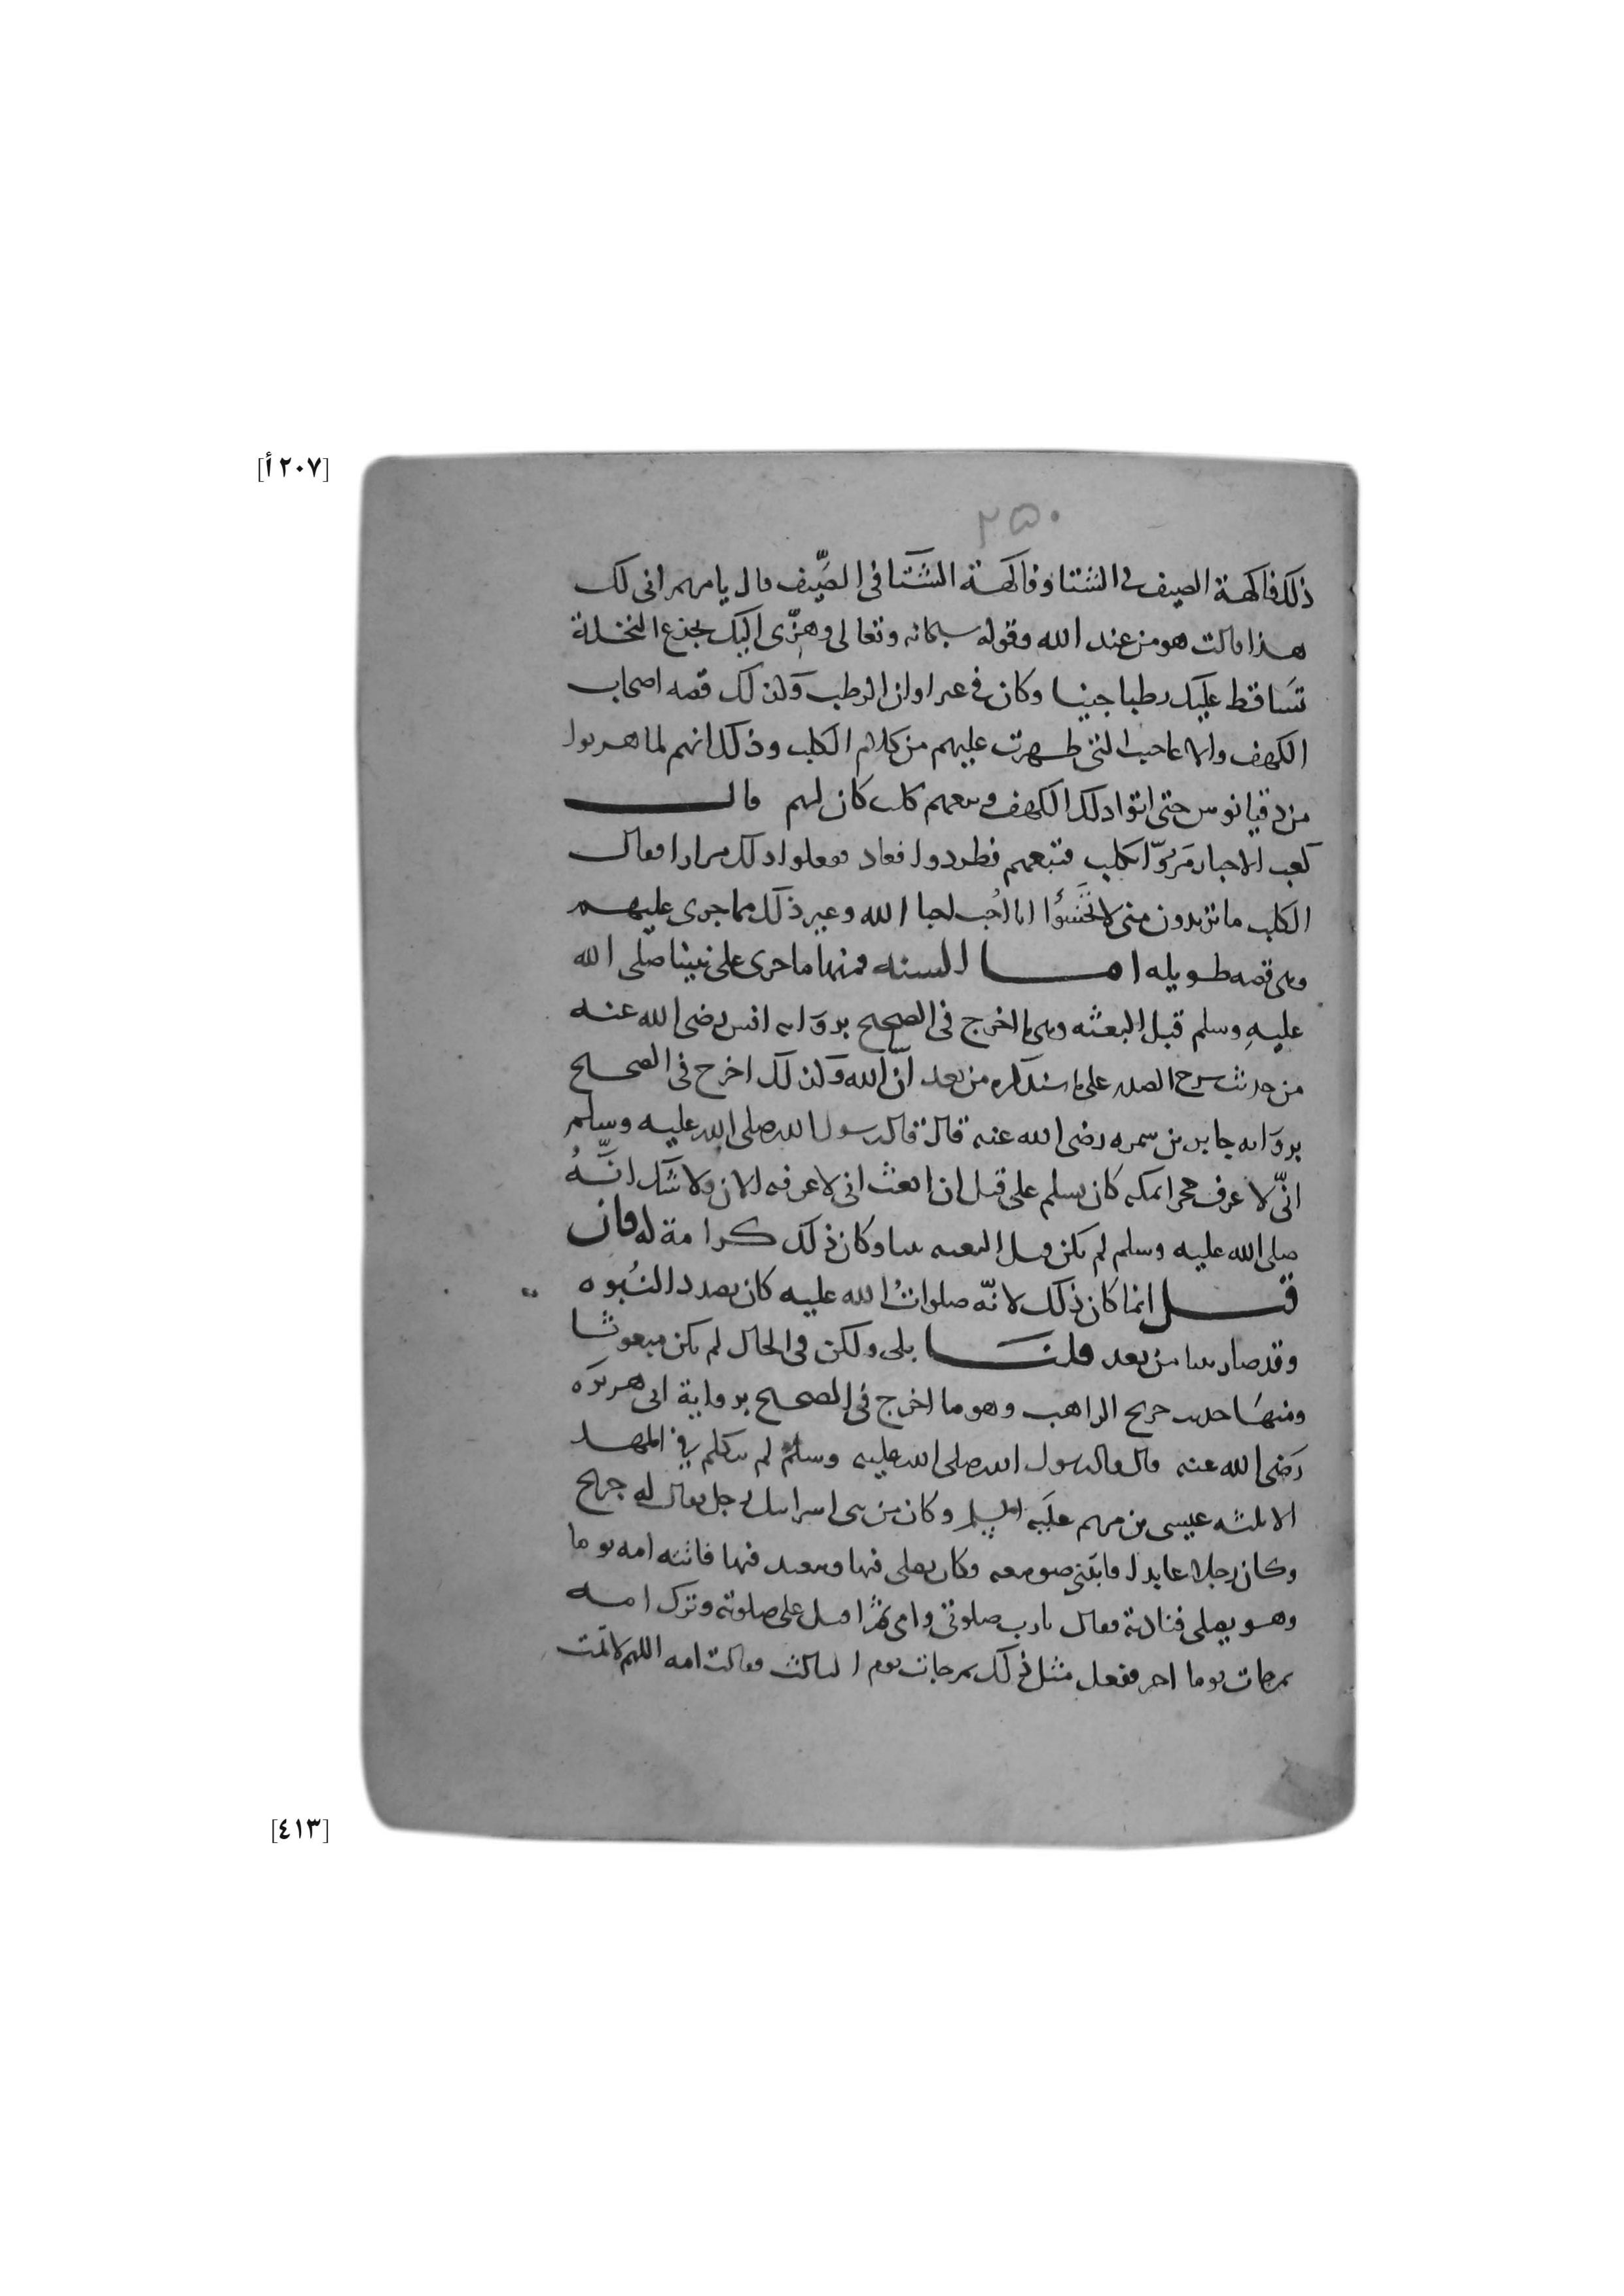 [٢٠٧ أ]
٢٥٠
ذلك فاكهة الصيف في الشتا وفاكهة الشتا في الصيف قال يا مريم انى لك
هذا قالت هو من عند الله وقوله سبحانه وتعالى وهزى اليك بجذع النخلة
تساقط عليك رطبا جنيا وكان في غير اوان الرطب وكذلك قصه اصحاب
الكهف والاعاجيب التي ظهرت عليهم من كلام الكلب وذلك انهم لما هربوا
من دقيانوس حتى اتوا ذلك الكهف ومعهم كلب كان لهم قال
كعب الاحبار مروا بكلب فتبعهم فطردوا فعاد ففعلوا ذلك مرارا فقال
الكلب ما تريدون منى لا تخشوا انا احب احبا الله وغير ذلك مما جرى عليهم
وهى قصه طويله اما السنه فمنها ما جرى على نبينا صلى الله
عليه وسلم قبل البعثه وهى ما اخرج في الصحيح بروايه انس رضى الله عنه
من حديث شرح الصدر على ما سنذكره من بعد ان الله وكذلك اخرج في الصحيح
بروايه جابر بن سمره رضى الله عنه قال قال رسول الله صلى الله عليه وسلم
انى لاعرف حجرا بمكه كان يسلم على قبل ان ابعث انى لاعرفه الان ولا شك انه
صلى الله عليه وسلم لم يكن قبل البعثه نبيا وكان ذلك كرامة له فان
قيل انما كان ذلك لانه صلوات الله عليه كان بصدد النبوه
وقد صار نبيا من بعد قلنا بلى ولكن في الحال لم يكن مبعوثا
ومنها حديث جريج الراهب وهو ما اخرج في الصحيح برواية ابى هريره
رضى الله عنه قال قال رسول الله صلى الله عليه وسلم لم يتكلم في المهد
الا ثلثه عيسى بن مريم عليه السلم وكان من بنى اسرائيل رجل يقال له جريج
وكان رجلا عابدا فابتنى صومعه وكان يصلى فيها ويتعبد فيها فاتته امه يوما
وهو يصلى فنادته فقال يا رب صلوتى وامى ثم اقبل على صلوته وترك امه
ثم جات يوما اخر ففعل مثل ذلك ثم جات يوم الثالث فقالت امه اللهم لا تمت
[٤١٣]